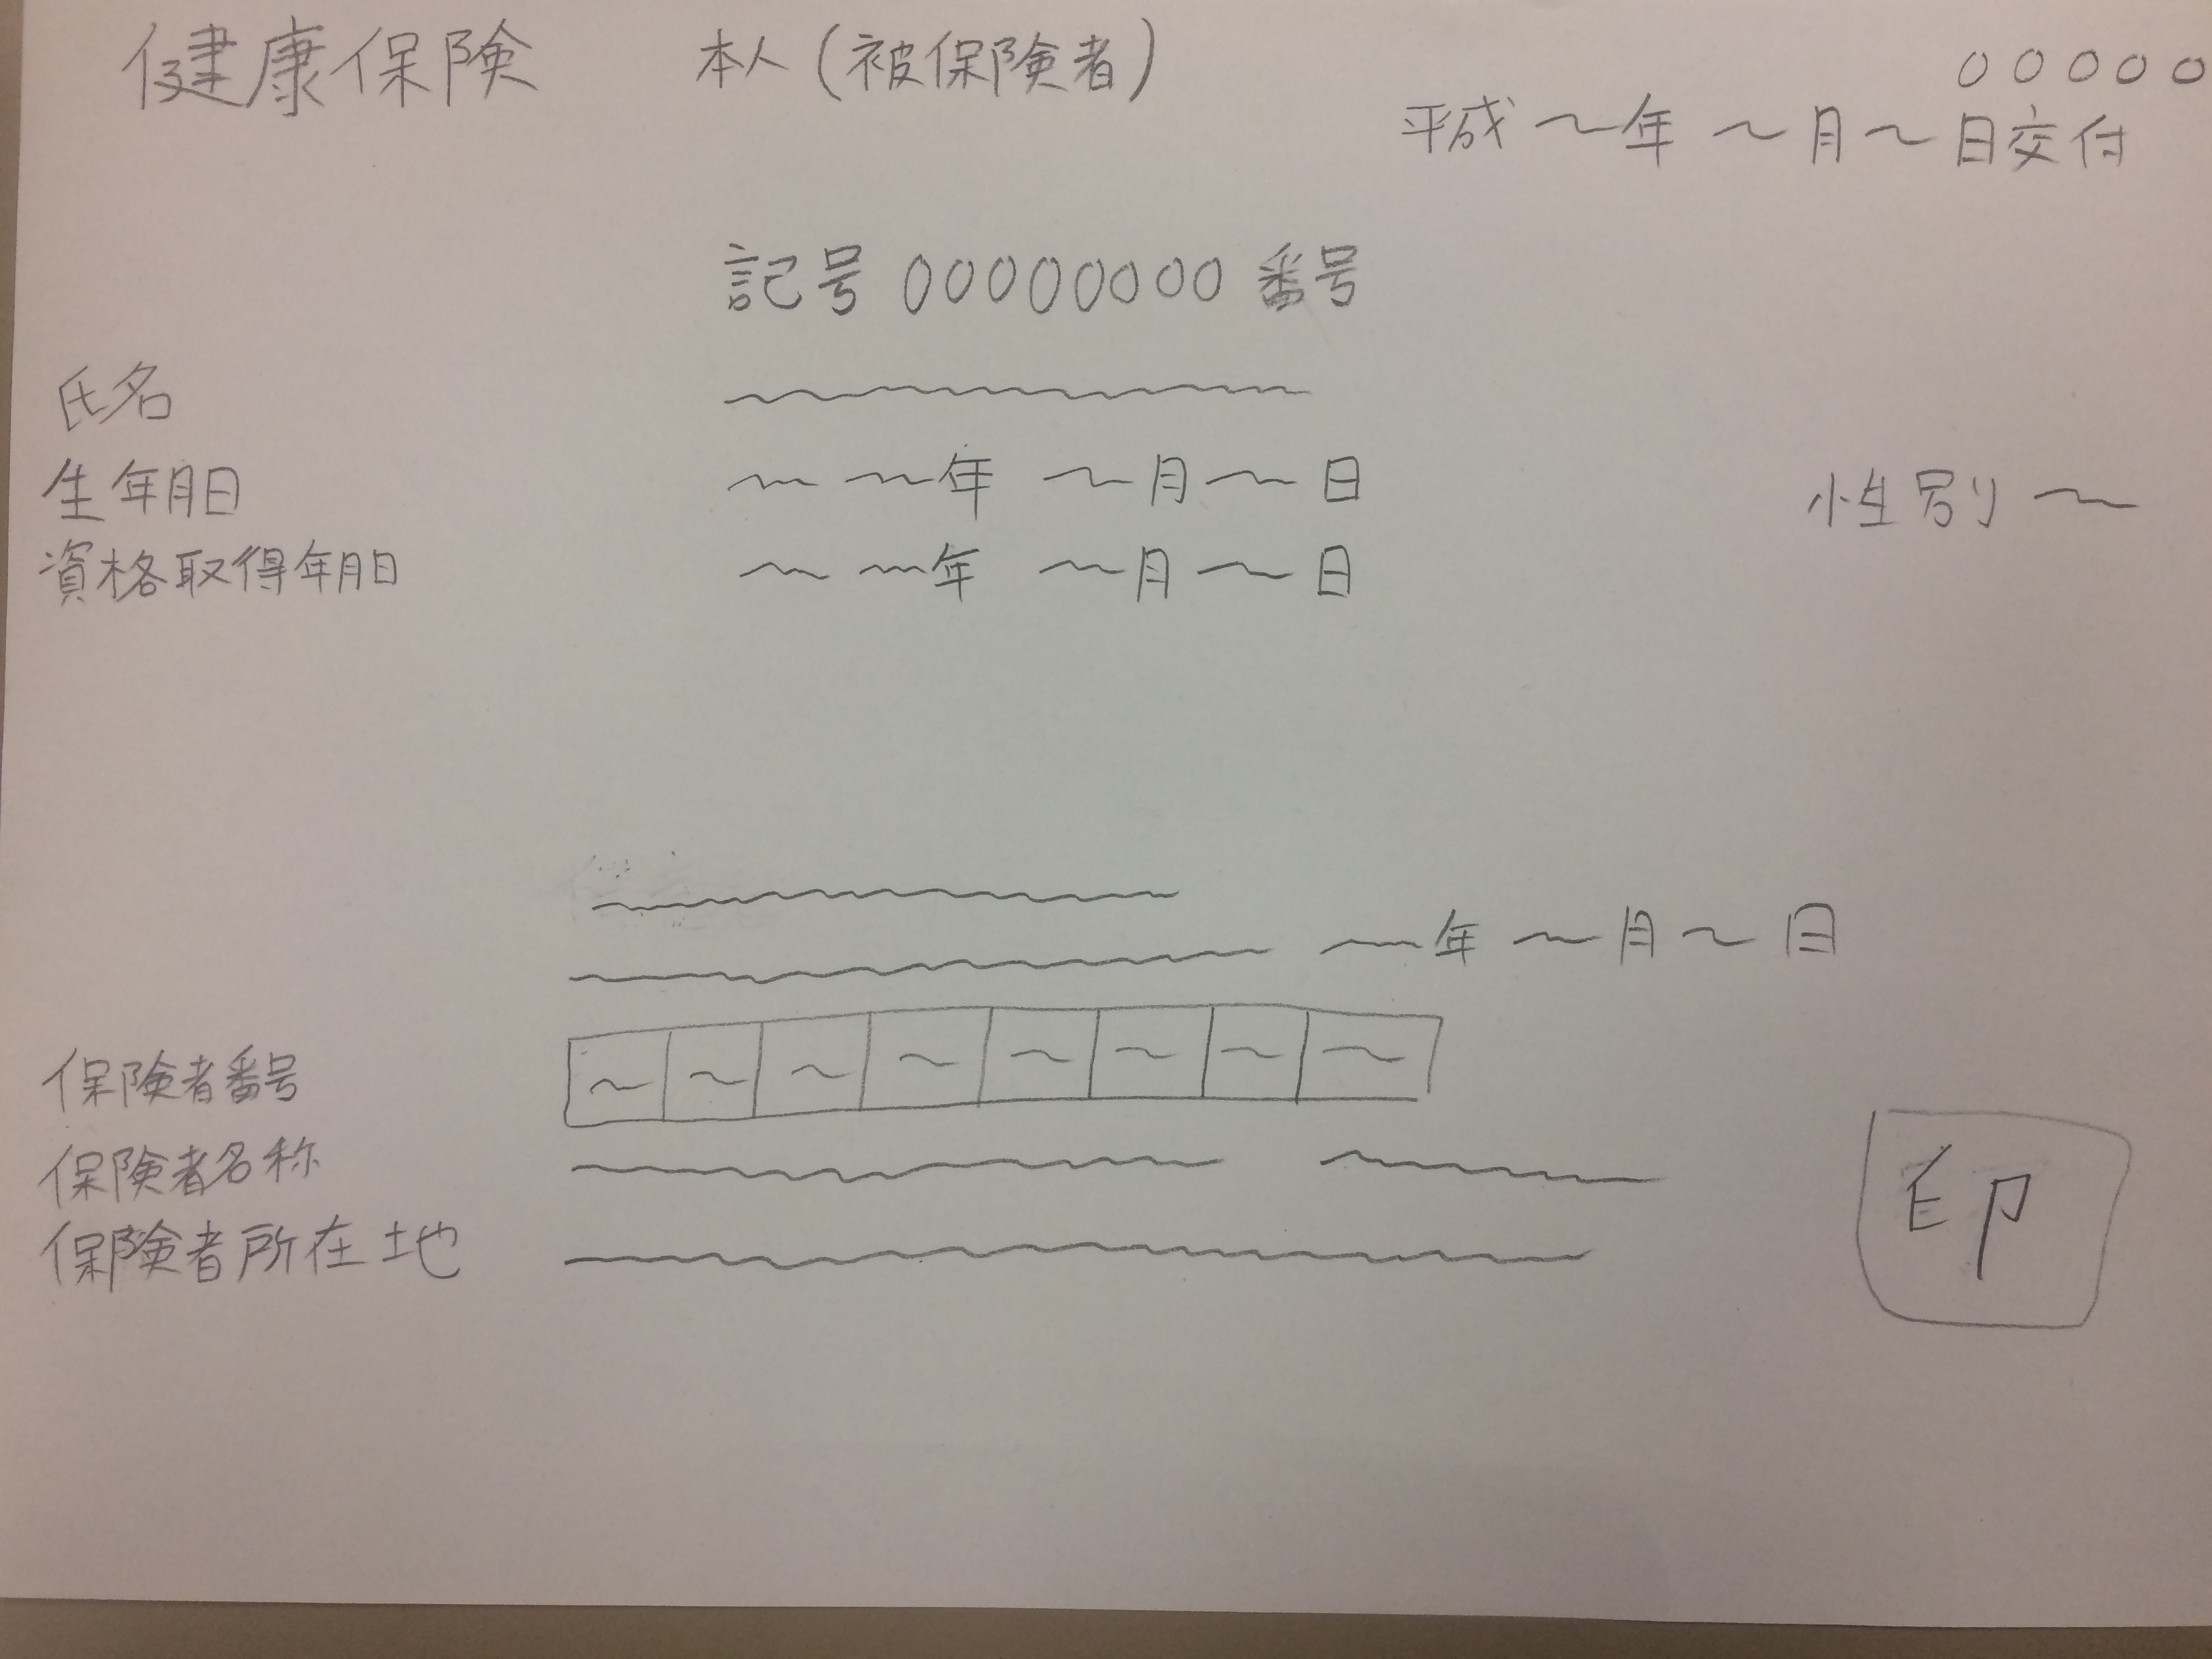 健康保険 本人(被保険者) 00000
平成 〜年 〜月〜日交付
記号 00000000 番号
氏名
生年月日 〜 〜年 〜月〜日 性別 〜
資格取得年月日 〜 〜年 〜月〜日
〜年 〜月〜日
保険者番号 〜 〜 〜 〜 〜 〜 〜 〜
保険者名称
保険者所在地
印